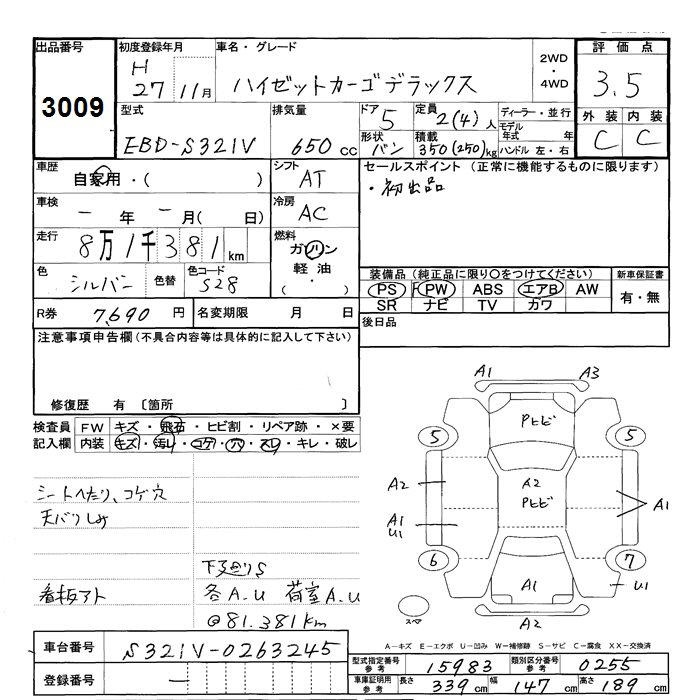 出品番号
3009
初度登録年月
H
27 11月
車名・グレード
ハイゼットカーゴデラックス
2WD
・
4WD
評価点
3.5
型式
EBD-S321V
排気量
650 cc
ドア
5
形状
バン
定員
2(4)人
積載
350(250)kg
ディーラー・並行
モデル年式 年
ハンドル 左・右
外装 内装
C C
車歴
自家用・( )
シフト
AT
セールスポイント (正常に機能するものに限ります)
・初出品
車検
ー年 ー月( 日)
冷房
AC
走行
8万1千381km
燃料
ガソリン
軽油
( ・ )
色
シルバー
色替
色コード
S28
装備品 (純正品に限り〇をつけてください)
PS PW ABS エアB AW
SR ナビ TV カワ
新車保証書
有・無
R券 7,690 円
名変期限 月 日
後日品
注意事項申告欄 (不具合内容等は具体的に記入して下さい)
修復歴 有 〔箇所 〕
検査員
記入欄
FW キズ・飛石・ヒビ割・リペア跡・×要
内装 キズ・汚レ・コゲ・穴・スレ・キレ・破レ
シートへたり、コゲ穴
天バリしみ
下廻りS
看板アト
各A.U 荷室A.U
@81.381km
A1 A3
Pヒビ
5 5
A2
A2
Pヒビ
A1
A1
U1
6 7
A1
U1
スマ
A2
A-キズ E-エクボ U-凹み W-補修跡 S-サビ C-腐食 XX-交換済
車台番号 S321V-0263245
登録番号 ー
型式指定番号
参考
15983
類別区分番号
参考
0255
車庫証明用
参考
長さ 339cm 幅 147cm 高さ 189cm